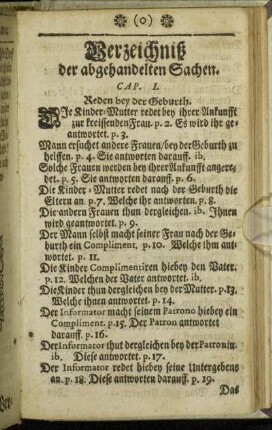 (o)
Verzeichniß
der abgehandelten Sachen.
CAP. I.
Reden bey der Geburth.
DIe Kinder-Mutter redet bey ihrer Ankunfft
zur kreissenden Frau. p. 2. Es wird ihr ge-
antwortet. p. 3.
Mann ersuchet andere Frauen/ bey der Geburth zu
helffen. p. 4. Sie antworten darauff. ib.
Solche Frauen werden bey ihrer Ankunfft angere-
det. p. 5. Sie antworten darauff. p. 6.
Die Kinder-Mutter redet nach der Geburth die
Eltern an. p. 7. Welche ihr antworten. p. 8.
Die andern Frauen thun dergleichen. ib. Ihnen
wird geantwortet. p. 9.
Der Mann selbst macht seiner Frau nach der Ge-
burth ein Compliment, p. 10. Welche ihm ant-
wortet. p. 11.
Die Kinder Complimentiren hiebey den Vater.
p. 12. Welchen der Vater antwortet. ib.
Die Kinder thun dergleichen bey der Mutter. p. 13.
Welche ihnen antwortet. p. 14.
Der Informator macht seinem Patrono hiebey ein
Compliment. p. 15. Der Patron antwortet
darauff. p. 16.
Der Informator thut dergleichen bey der Patronin.
ib. Diese antwortet. p. 17.
Der Informator redet hiebey seine Untergebens
an. p. 18. Diese antworten darauff. p. 19.
Das